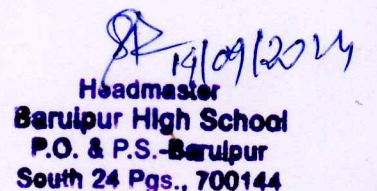 19/09/2024
Headmaster
Baruipur High School
P.O. & P.S.-Baruipur
South 24 Pgs., 700144